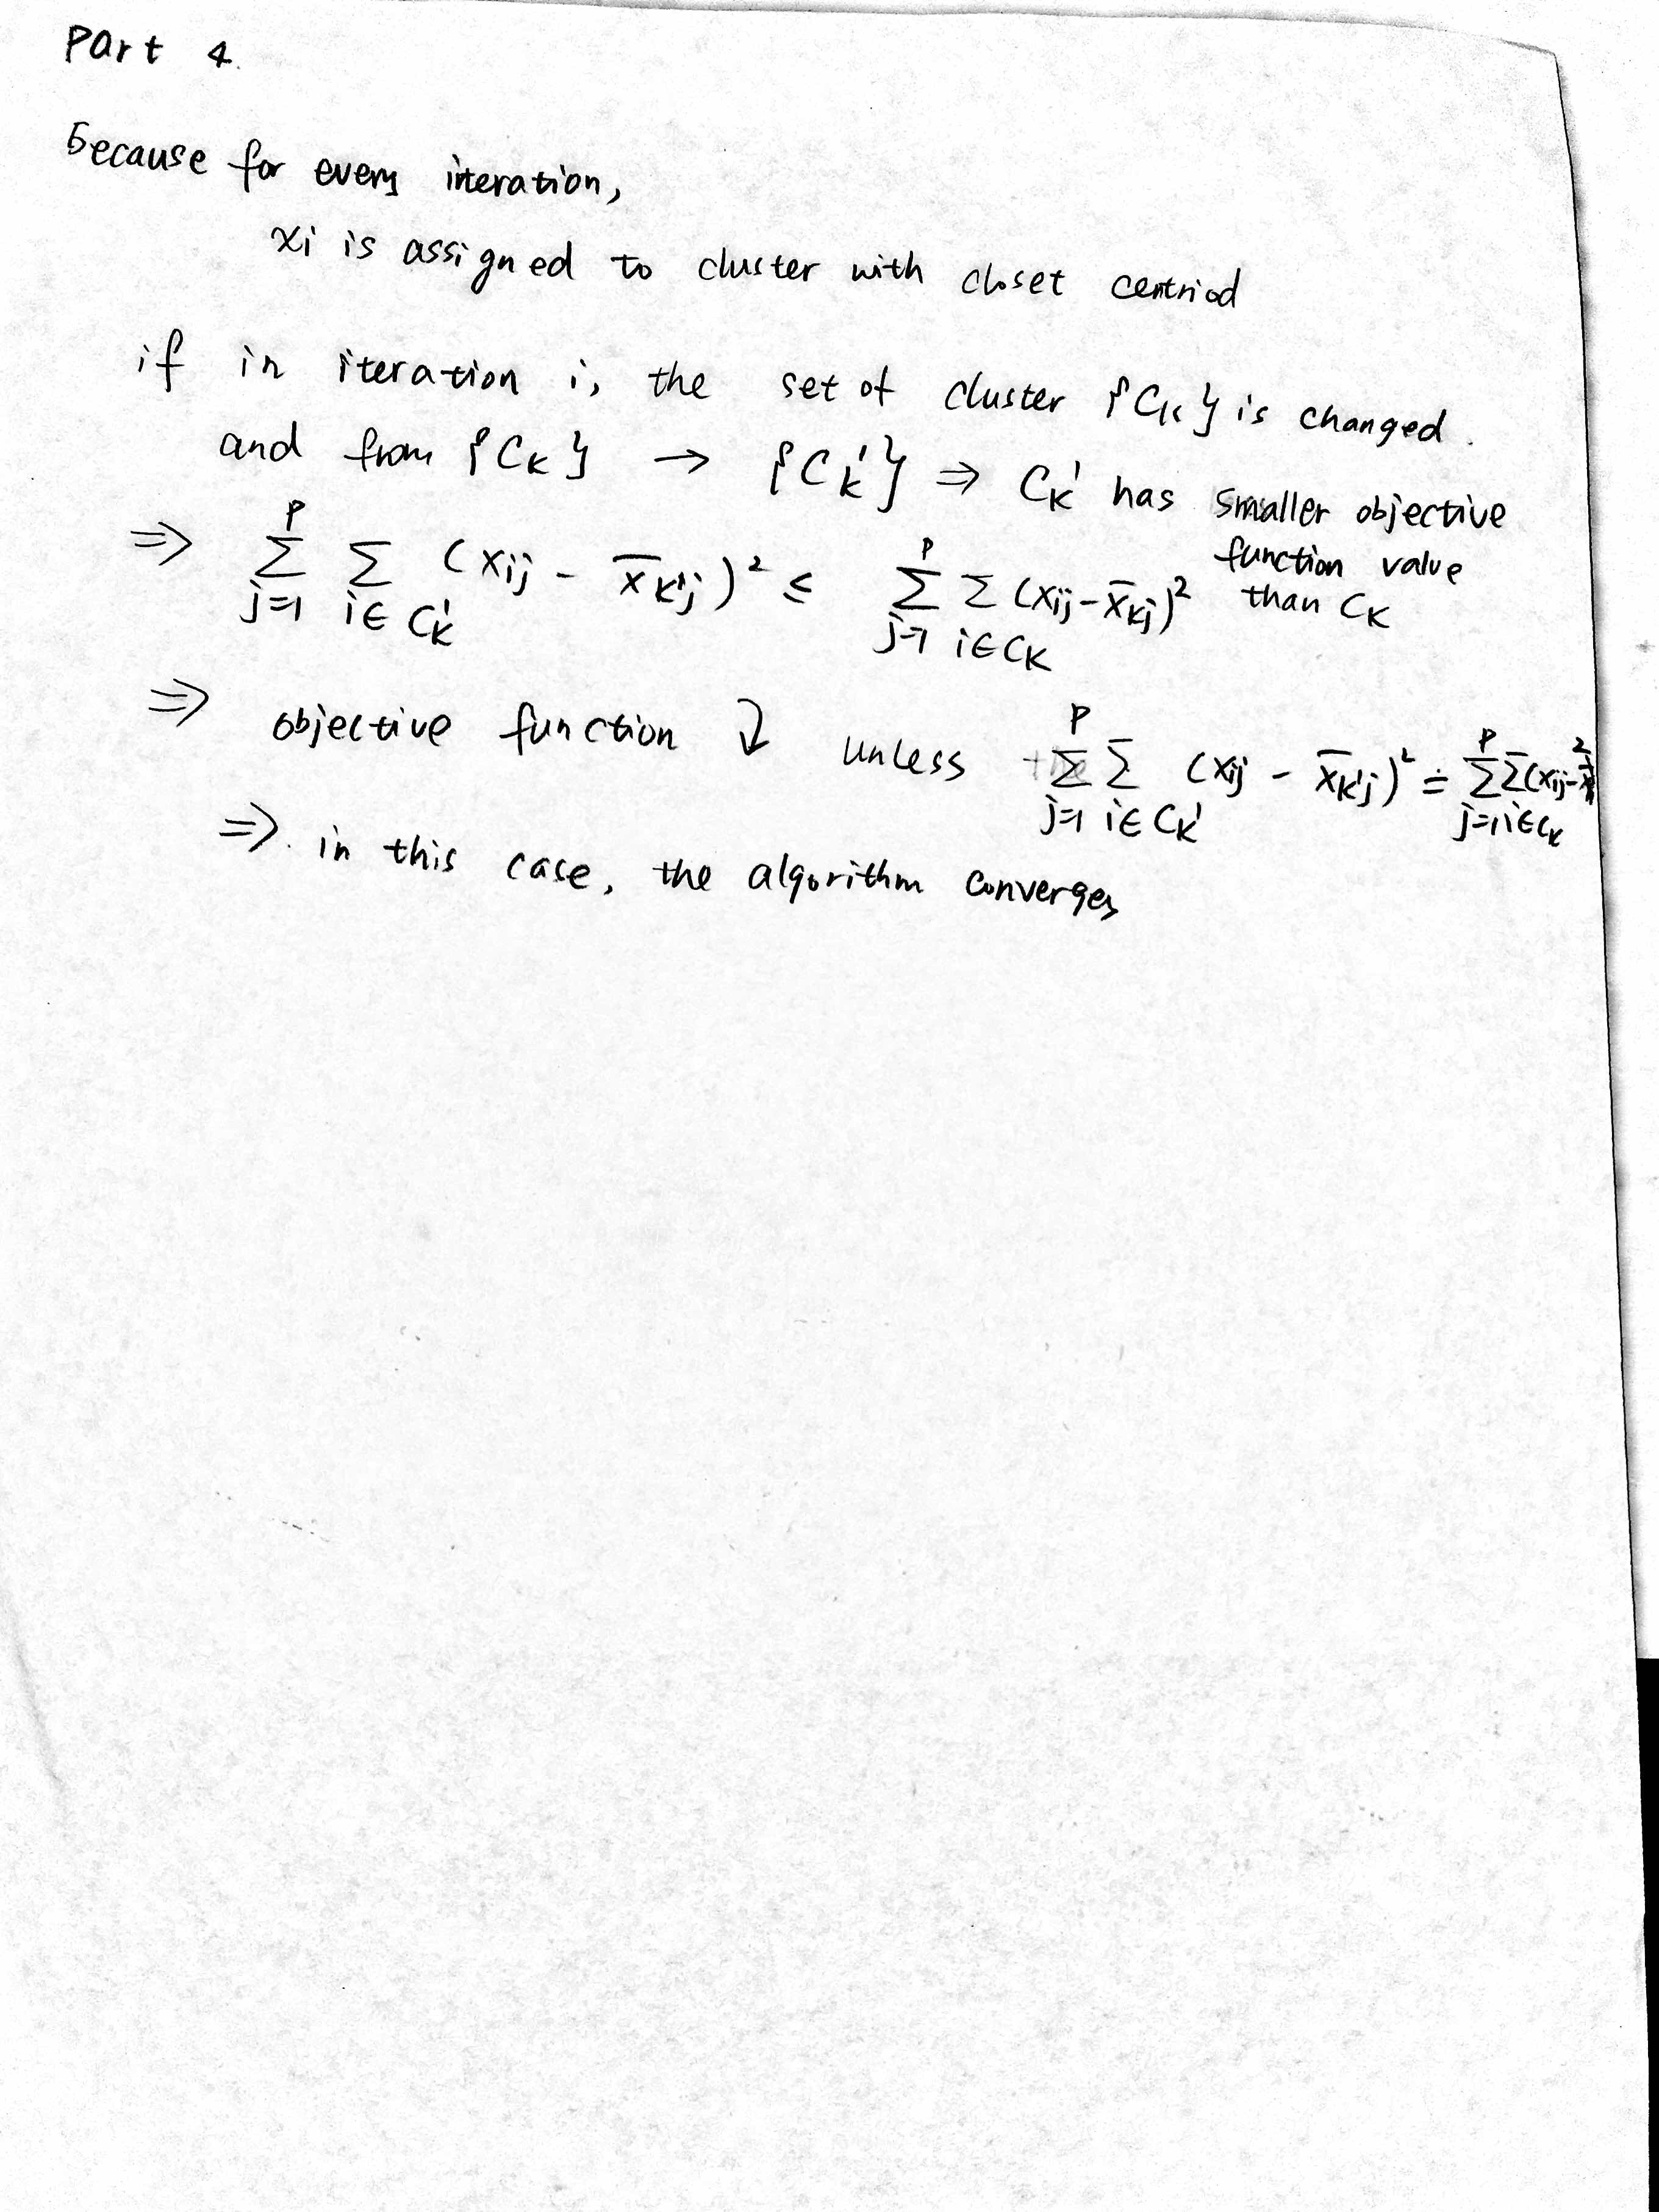 Part 4.
because for every iteration,
xi is assigned to cluster with closet centriod
if in iteration i, the set of cluster {CK} is changed.
and from {CK} → {CK'} ⇒ CK' has smaller objective
function value
than CK
⇒ ∑_{j=1}^{P} ∑_{i∈CK'} (xij - x̄K'j)² ≤ ∑_{j=1}^{P} ∑_{i∈CK} (xij - x̄Kj)²
⇒ objective function ↓ unless ∑_{j=1}^{P} ∑_{i∈CK'} (xij - x̄K'j)² = ∑_{j=1}^{P} ∑_{i∈CK} (xij -
⇒. in this case, the algorithm converges